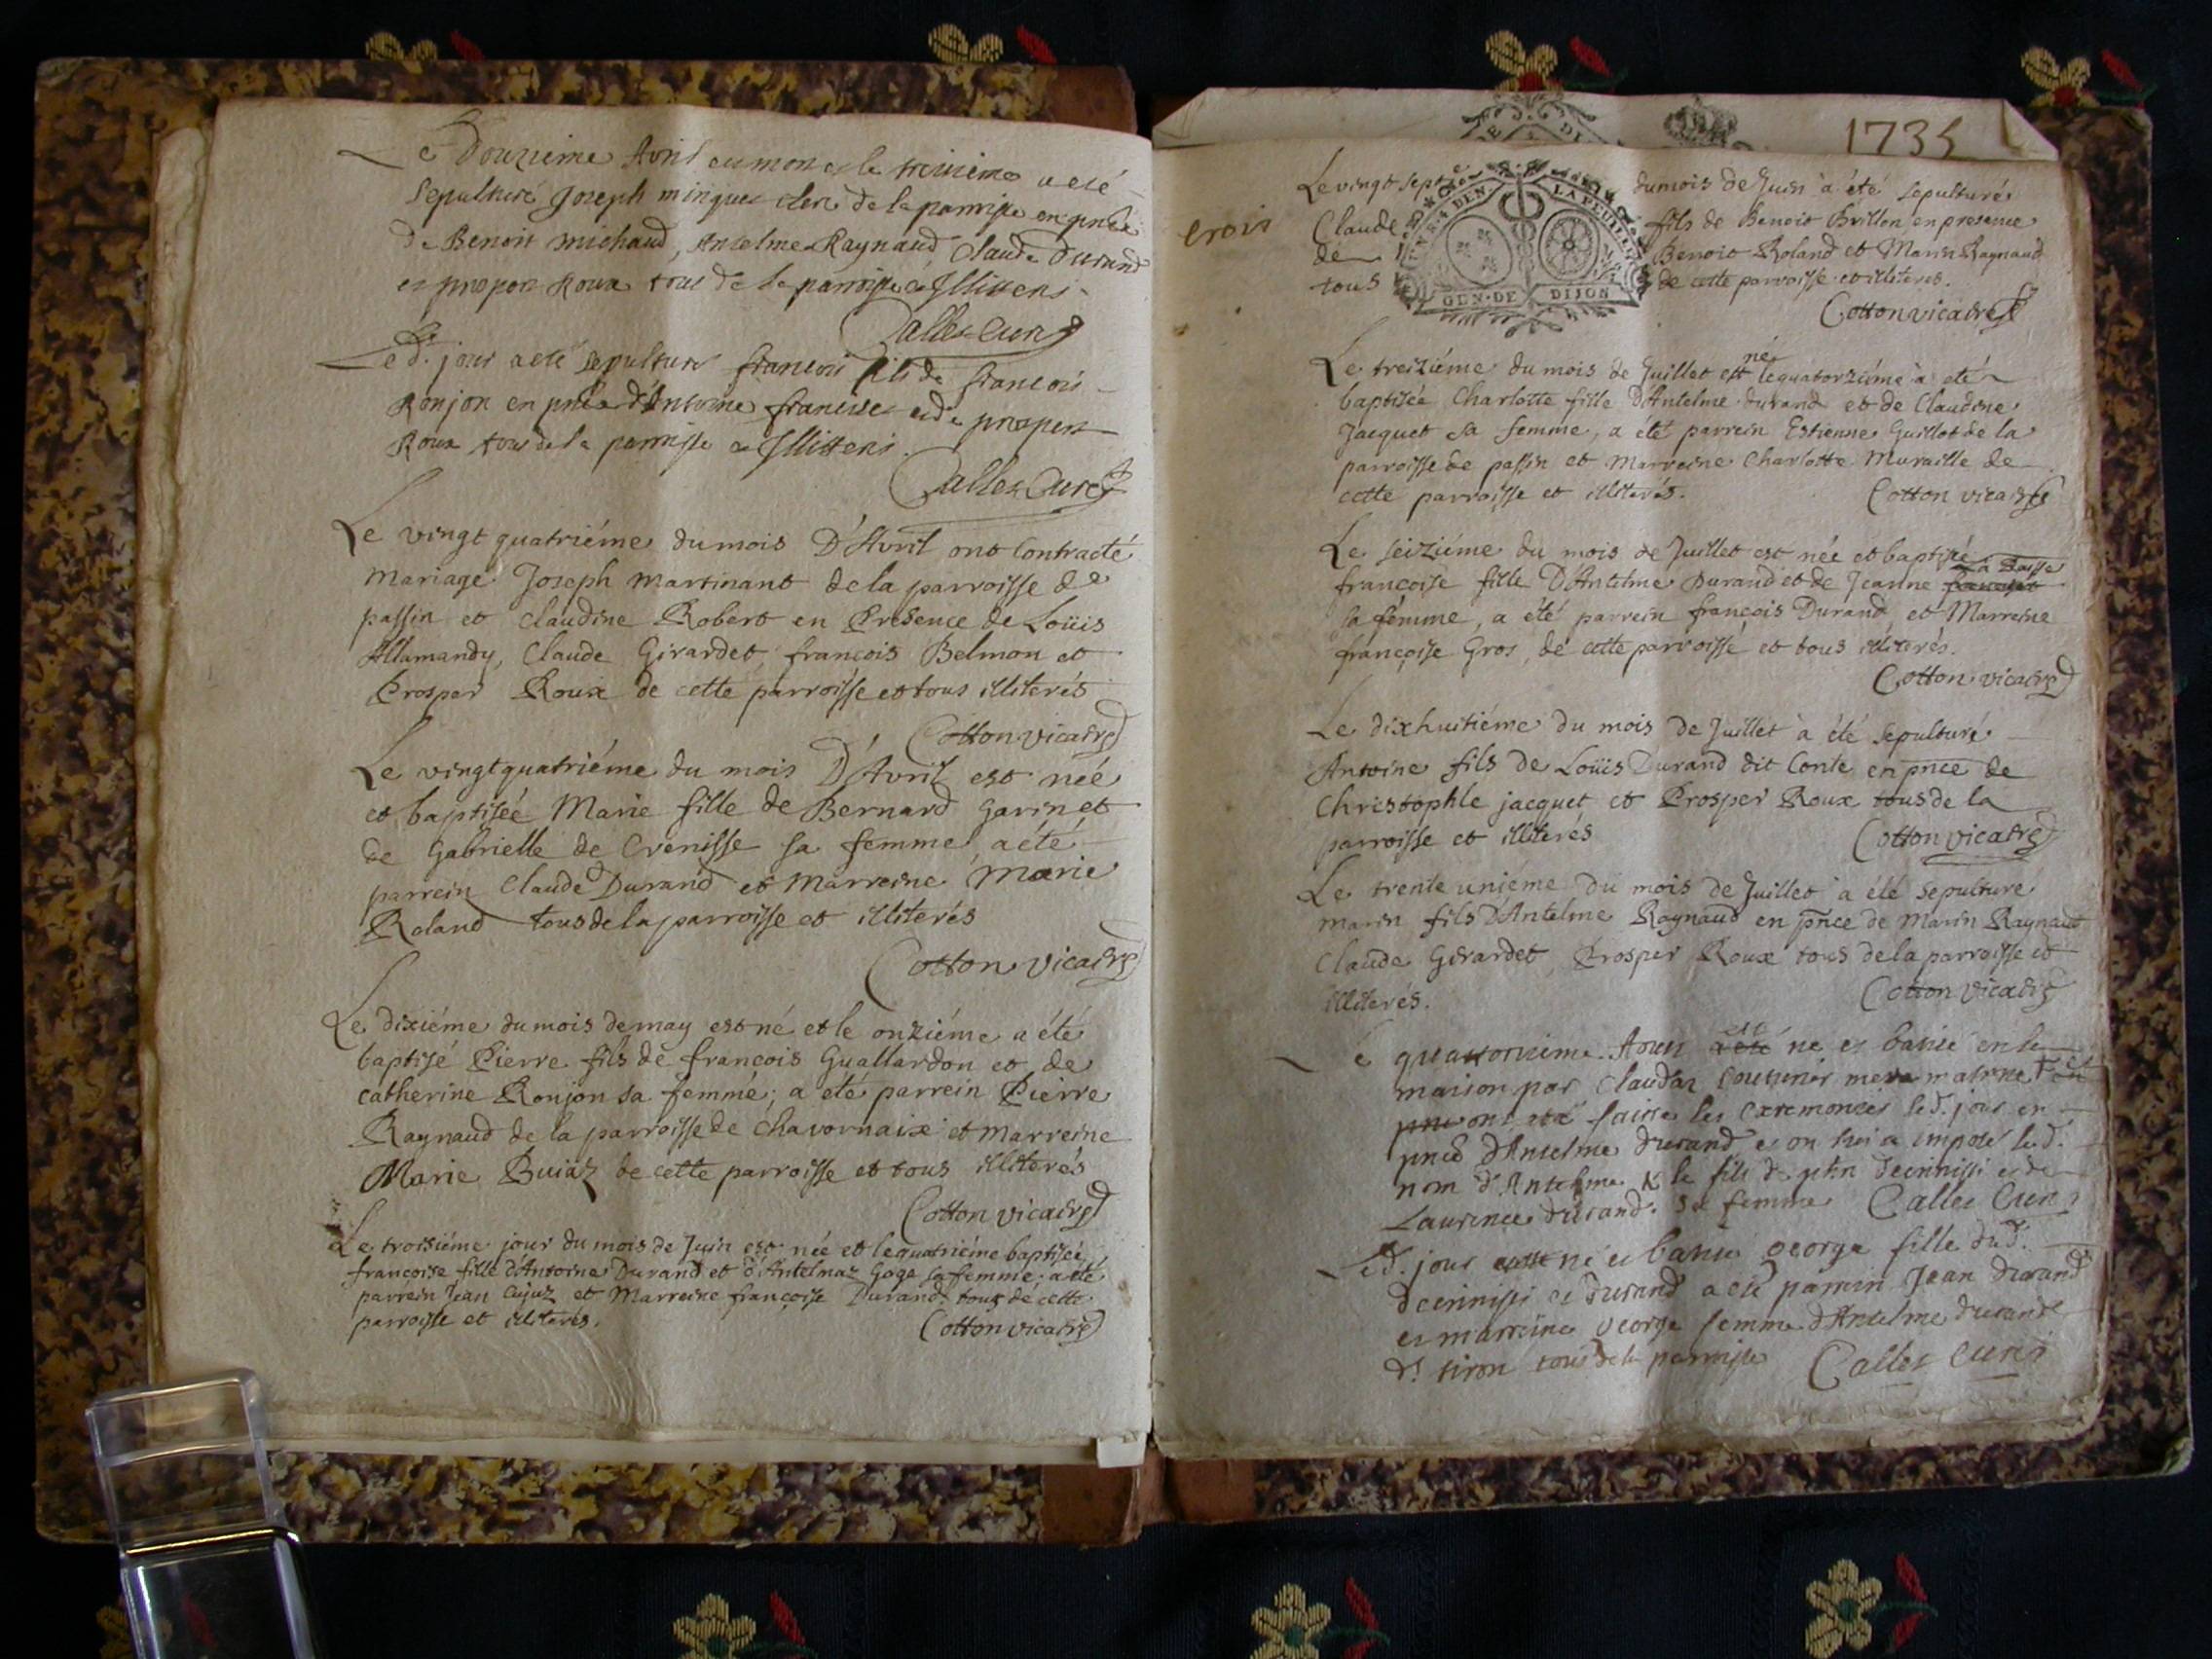 Le Douzieme Avril est mort et le treizieme a eté
sepulturé Joseph minguet clerc de la parroisse en pnce
de Benoit michaud, Antelme Raynaud, Claude Durand
et prosper Roux tous de la parroisse et Illitterés
Callet Curé
Le d. jour a eté sepulturé francois fils de francois
Ronjon en pnce d'Antoine et de prosper
Roux tous de la parroisse et Illitterés
Callet Curé
Le vingt quatriéme du mois D'Avril ont Contracté
Mariage Joseph Martinant de la parroisse de
passin et Claudine Robert en Présence de Loüis
Allamandy, Claude Girardet, françois Belmon et
Prosper Roux de cette parroisse et tous illiterés
Cotton vicaire
Le vingtquatriéme du mois D'Avril est née
et baptisée Marie fille de Bernard Garin et
de Gabrielle de Crenisse sa femme a été
parrein Claude Durand et Marreine Marie
Roland tous de la parroisse et illiterés
Cotton vicaire
Le dixiéme du mois de may est né et le onziéme a été
baptisé Pierre fils de françois Guallardon et de
catherine Ronjon sa femme; a été parrein Pierre
Raynaud de la parroisse de Chavornaix et marreine
Marie Bujaz de cette parroisse et tous illiterés
Cotton vicaire
Le troisiéme jour du mois de Juin est née et le quatriéme baptisée
françoise fille d'Antoine Durand et d'Antelmaz Goge sa femme; a été
parrein Jean Cujuz et Marreine françoise Durand tous de cette
parroisse et illiterés.
Cotton vicaire
1735
Le vingt sept dumois de Juin à été sepulturé
Claude fils de Benoit Brillon en presence
de Benoit Roland et Marin Raynaud
tous de cette parroisse et illiterés.
GEN. DE DIJON
trois
Cotton vicaire
Le treiziéme du mois de Juillet est né le quatorziéme à eté
baptisée Charlotte fille D'Antelme durand et de Claudine
Jacquet sa femme, a eté parrein Estienne Guillot de la
parroisse de passin et Marreine Charlotte Muraille de
cette parroisse et illiterés.
Cotton vicaire
Le seiziéme du mois de Juillet est née et baptisée
françoise fille D'Antelme Durand et de Jeanne
sa femme, a été parrein françois Durand et Marreine
françoise Gros, de cette parroisse et tous illiterés.
Cotton vicaire
Le dixhuitiéme du mois de Juillet à été sepulturé
Antoine fils de Loüis Durand dit Conte en pnce de
Christophle jacquet et Prosper Roux tous de la
parroisse et illiterés
Cotton vicaire
Le trente uniéme du mois de Juillet à été sepulturé
marin fils D'Antelme Raynaud en pnce de Marin Raynaud
Claude Girardet, Prosper Roux tous de la parroisse et
illiterés.
Cotton vicaire
Le quatorzieme Aoust est né et batisé en la
maison par Claudaz Couturier
ont eté faites les ceremonies led. jour en
pnce d'Antelme durand et on lui a imposé led.
nom d'Antelme le fils de decrinissi et de
Laurence durand sa femme Callet Curé
Led. jour né et batisée george fille dud.
decrinissi et durand a eté parrein Jean durand
et marreine george femme d'Antelme durand
dt tiron tous de la parroisse Callet Curé